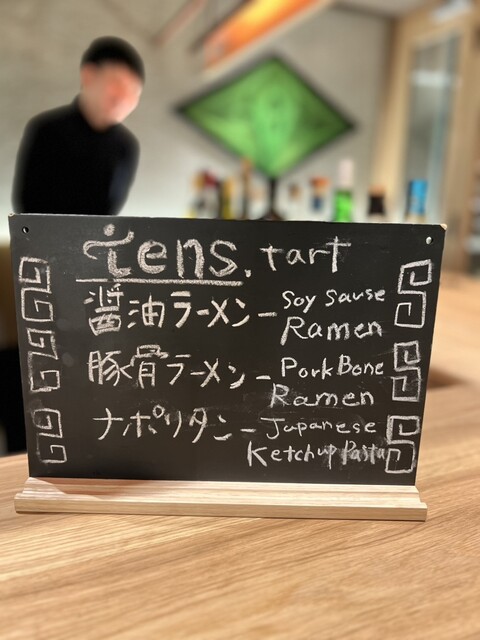 tens. tart
醤油ラーメン - Soy Sause
Ramen
豚骨ラーメン - Pork Bone
Ramen
ナポリタン - Japanese
Ketchup Pasta